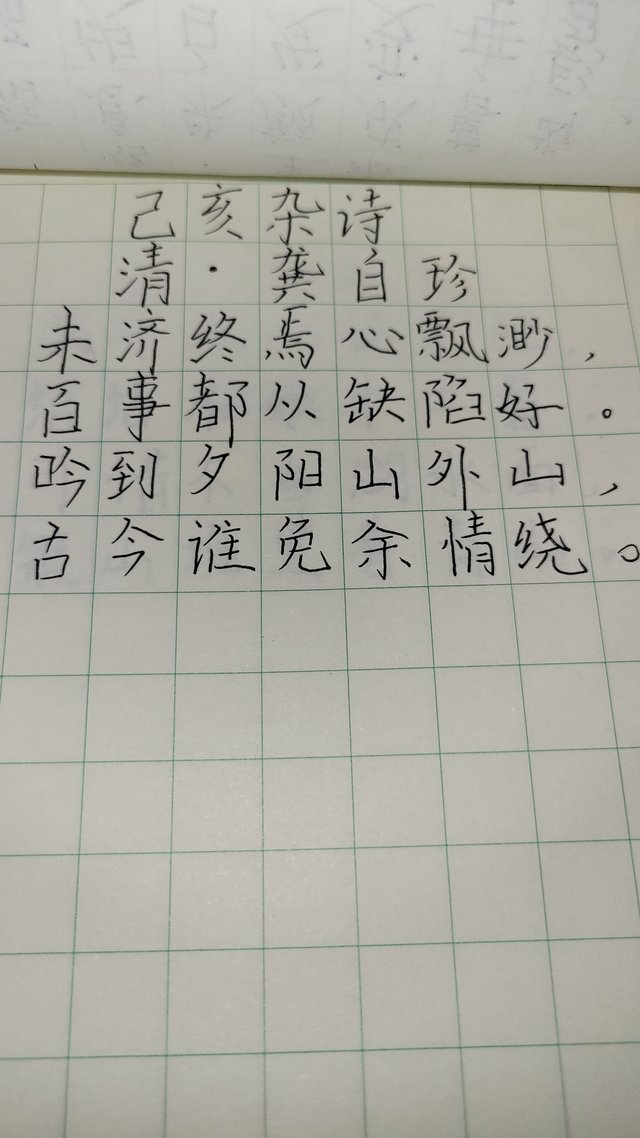 己亥杂诗
清·龚自珍
未济终焉心飘渺，
百事都从缺陷好。
吟到夕阳山外山，
古今谁免余情绕。